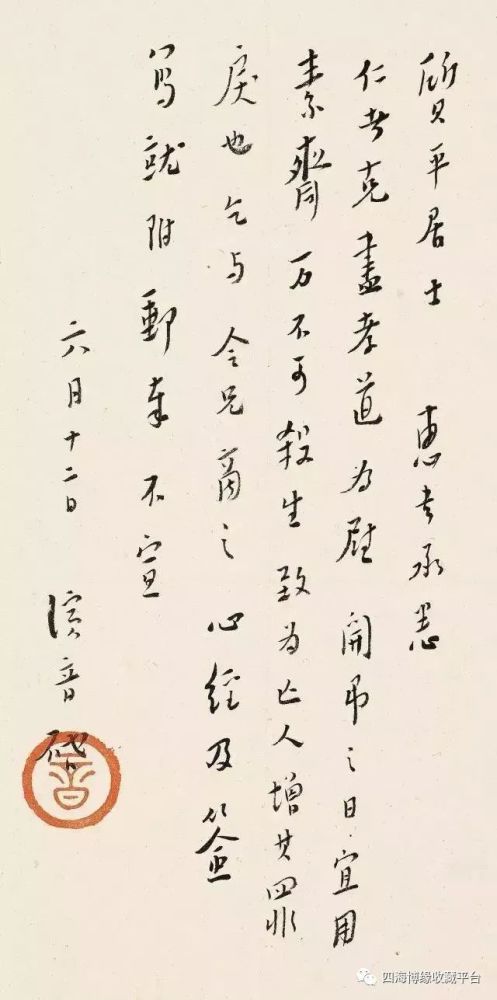 质平居士 惠书承悉
仁者克尽孝道为慰 开吊之日宜用
素斋万不可杀生致为亡人增其罪
戾也乞与令兄商之 心经及签
写就附邮奉不宣
六月十二日 演音启
四海博缘收藏平台